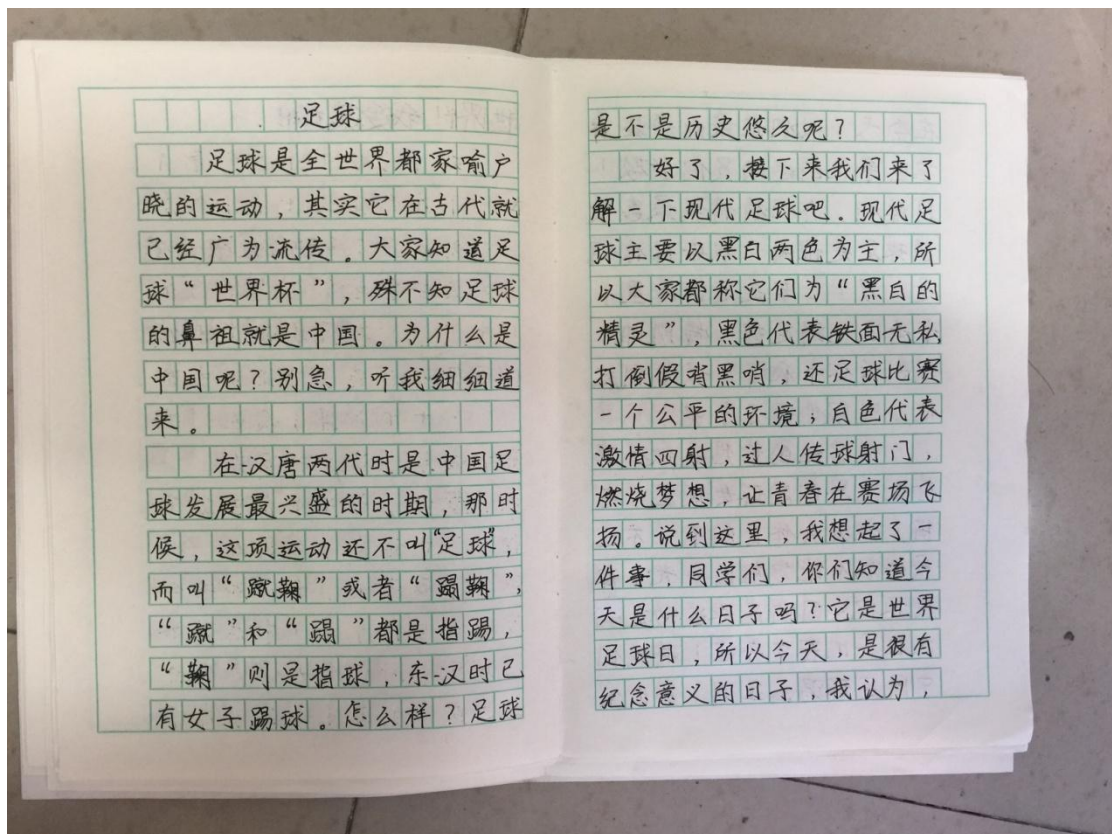 足球
足球是全世界都家喻户
晓的运动，其实它在古代就
已经广为流传。大家知道足
球“世界杯”，殊不知足球
的鼻祖就是中国。为什么是
中国呢？别急，听我细细道
来。
在汉唐两代时是中国足
球发展最兴盛的时期，那时
候，这项运动还不叫“足球”，
而叫“蹴鞠”或者“蹋鞠”，
“蹴”和“蹋”都是指踢，
“鞠”则是指球，东汉时已
有女子踢球。怎么样？足球
是不是历史悠久呢？
好了，接下来我们来了
解一下现代足球吧。现代足
球主要以黑白两色为主，所
以大家都称它们为“黑白的
精灵”，黑色代表铁面无私
打倒假哨黑哨，还足球比赛
一个公平的环境，白色代表
激情四射，过人传球射门，
燃烧梦想，让青春在赛场飞
扬。说到这里，我想起了一
件事，同学们，你们知道今
天是什么日子吗？它是世界
足球日，所以今天，是很有
纪念意义的日子，我认为，